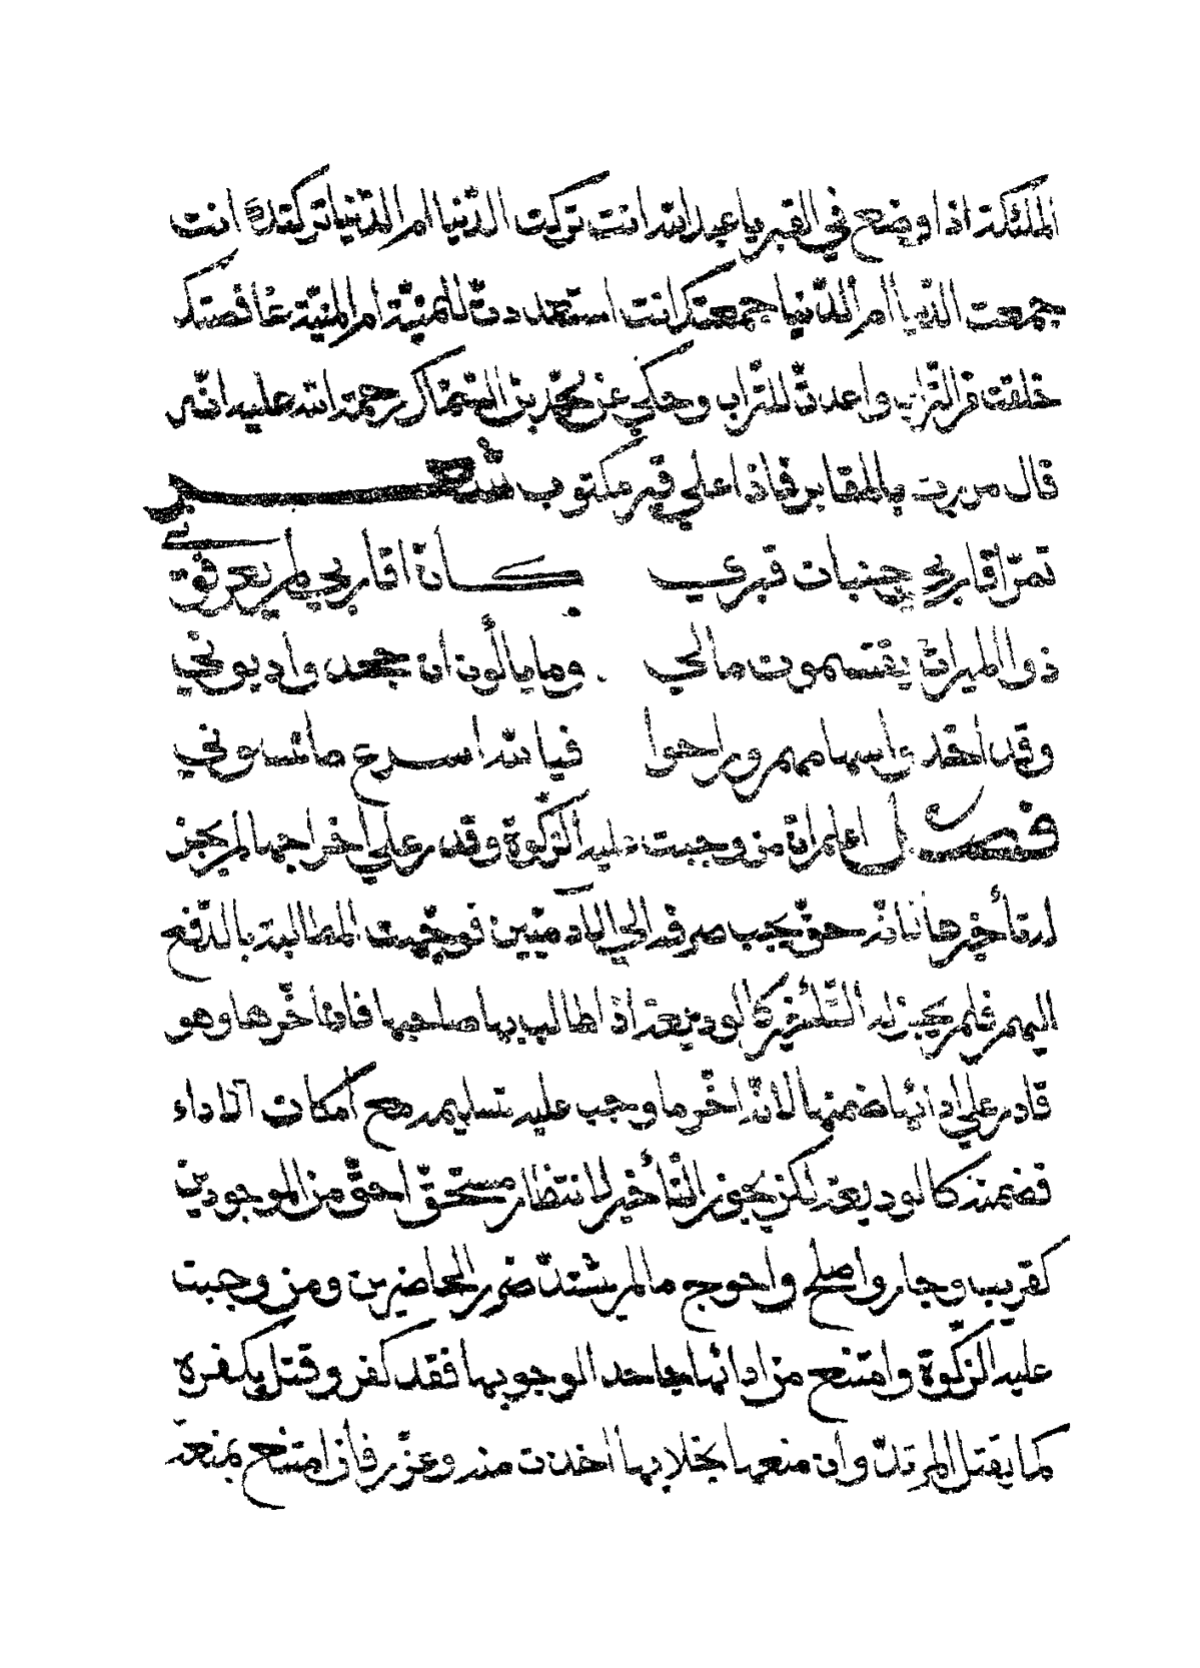 الملئكة اذا اوضع في القبر يا عبد الله انت تركت الدّنيا ام الدّنيا تركتك انت
جمعت الدّنيا ام الدّنيا جمعتك انت استعددتّ للمنيّة ام المنيّة غافصتك
خلقت من التّراب واعدتّ للتّراب وحكي عن محمّد بن السّمّاك رحمة الله عليه انّه
قال مررت بالمقابر فاذا علي قبر مكتوب شعر
تمرّ اقاربي جنبات قبري كأنّ اقاربي لم يعرفوني
ذوا الميراث يقتسمون مالي وما يألون ان جحدوا ديوني
وقد اخذوا سهامهم وراحوا فيا لله اسرع ما نسوني
فصل اعلم انّ من وجبت عليه الزّكوة وقدر علي اخراجها لم يجز
له تأخيرها فانّه حقّ يجب صرفه الي الآدميّين توجّهت المطالبة بالدّفع
اليهم فلم يجز له التّأخير كالوديعة اذا طالب بها صاحبها فان اخّرها وهو
قادر علي ادائها ضمنها لانّه اخّر ما وجب عليه تسليمه مع امكان الاداء
فضمنه كالوديعة لكن يجوز التّأخير لانتظار مستحقّ احقّ من الموجودين
كقريب وجار واصلح واحوج ما لم يشتدّ ضرر الحاضرين ومن وجبت
عليه الزّكوة وامتنع من ادائها جاحدا لوجوبها فقد كفر وقتل بكفره
كما يقتل المرتدّ وان منعها بخلا بها اخذت منه وعزّر فان امتنع بمنعة